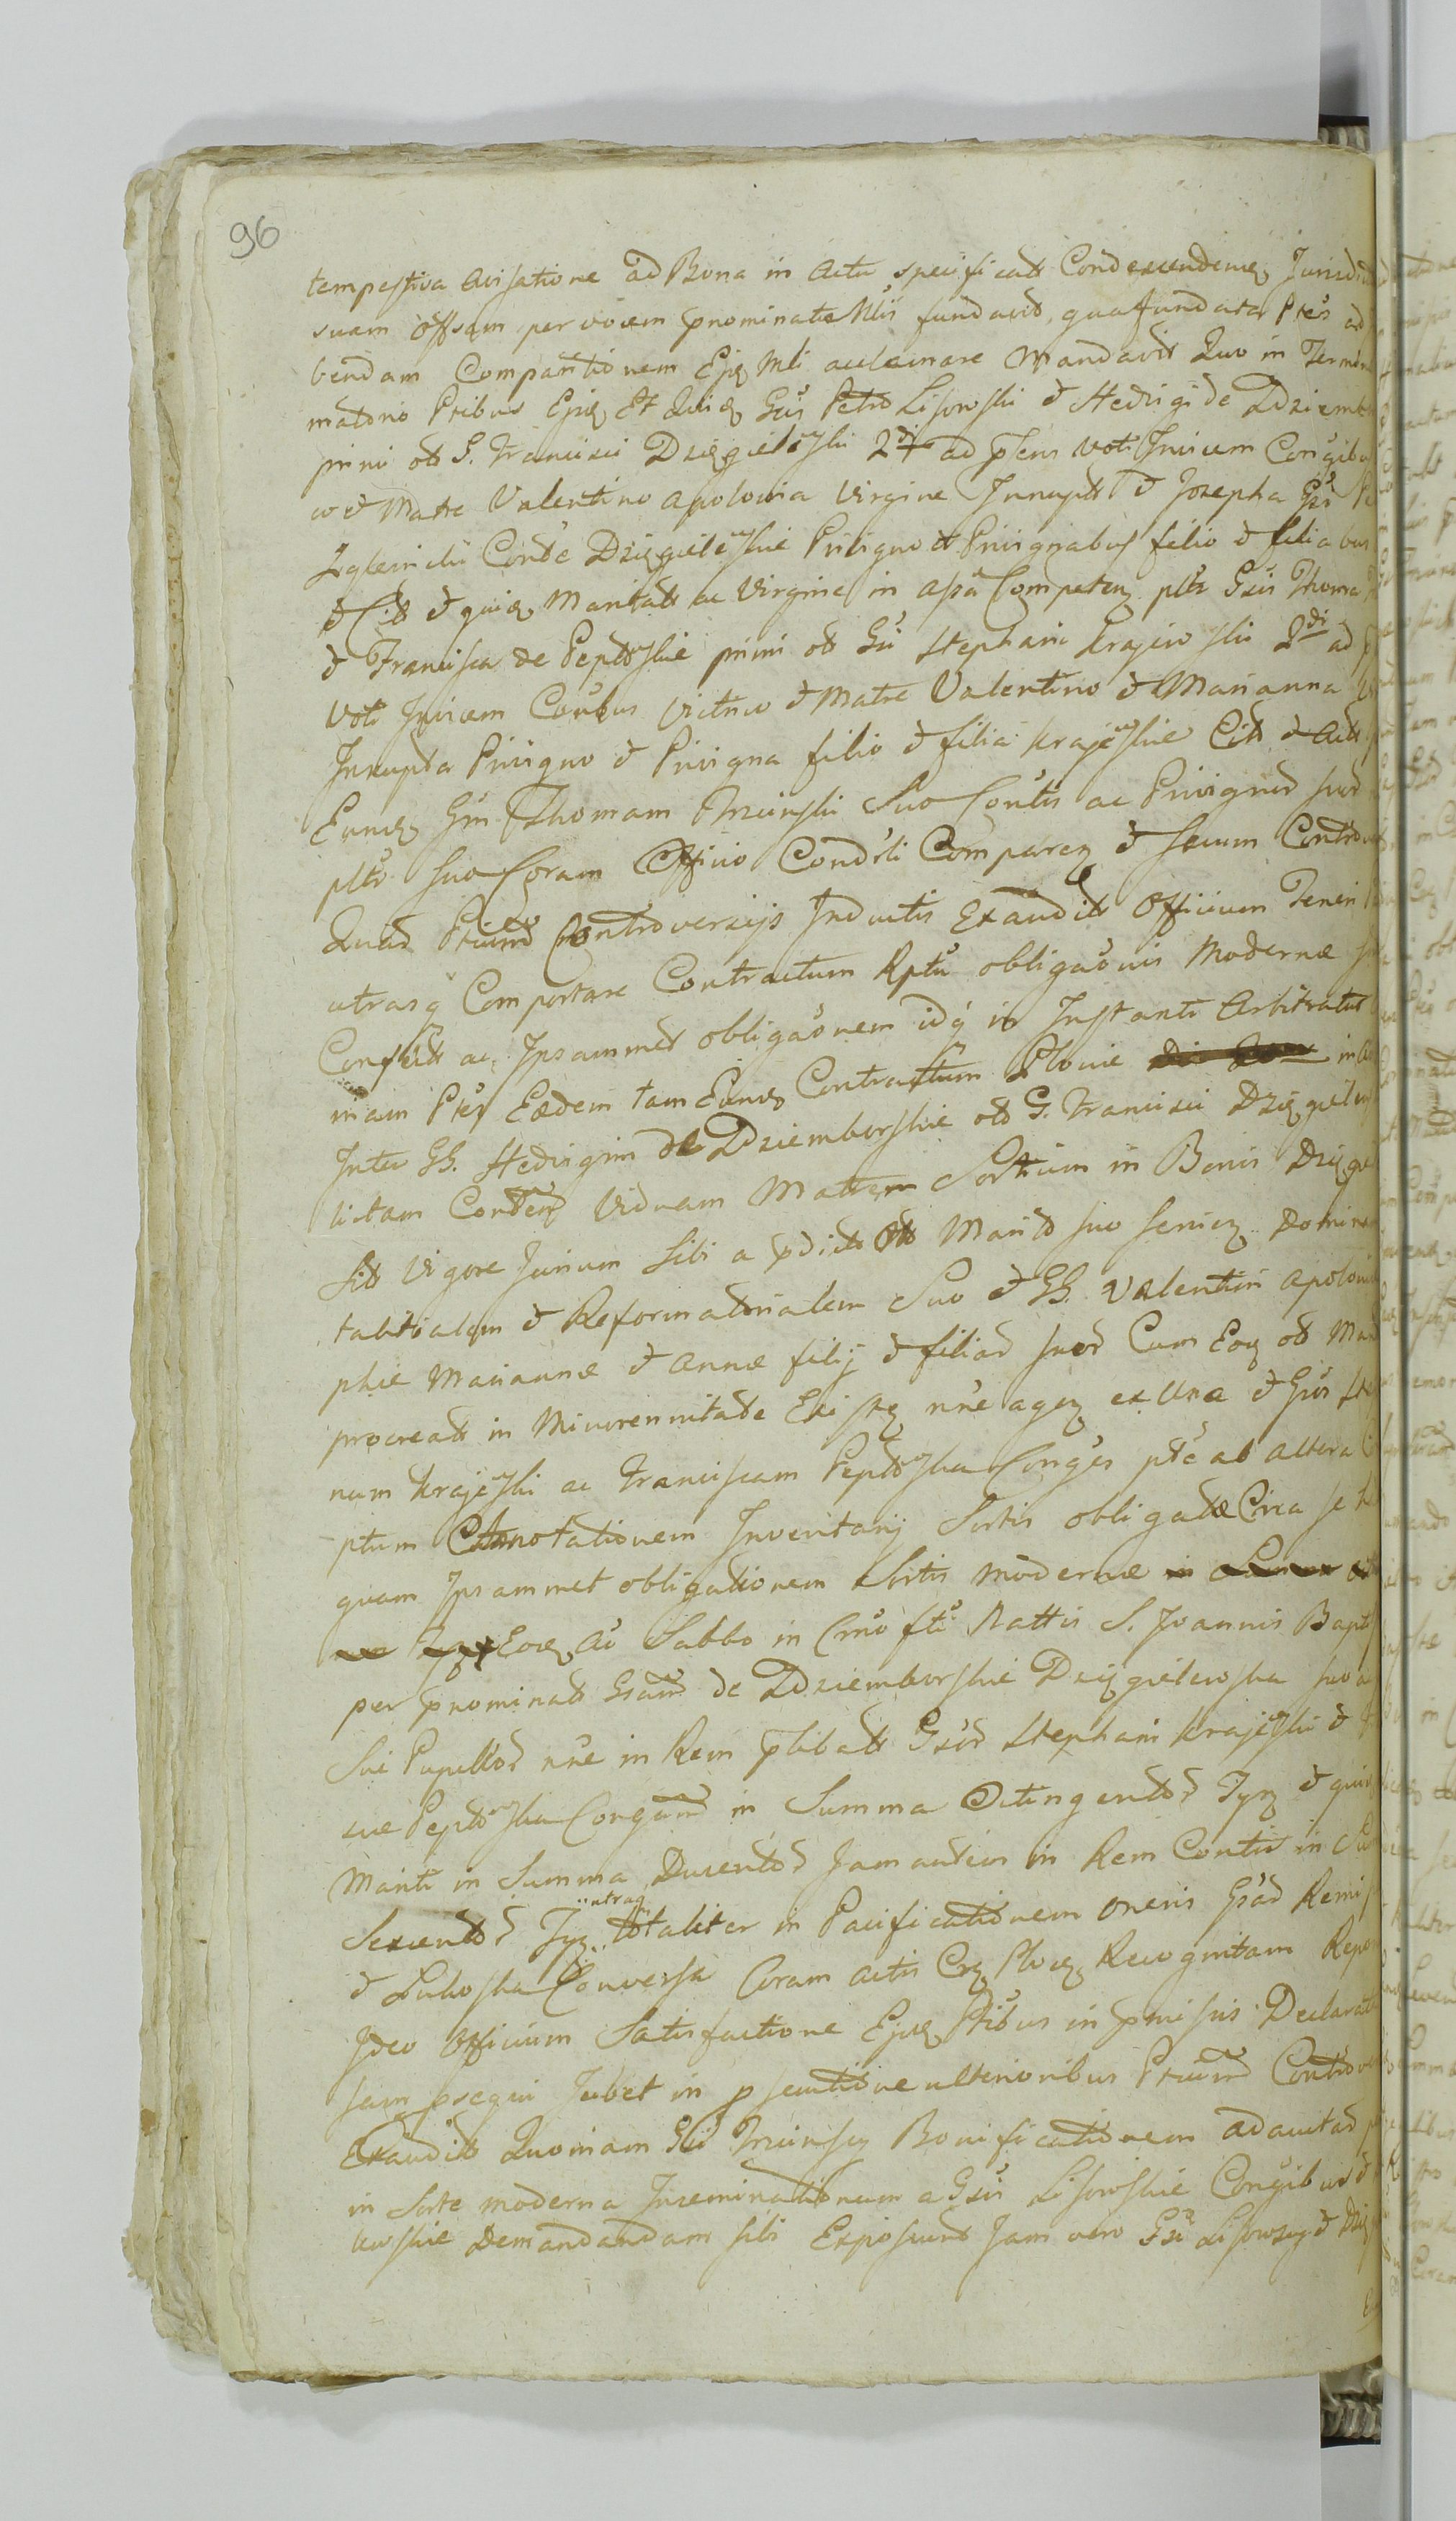 96
tempestiva avisatione ad Bona in Actu specificatt Condescendeneq Jurisdi
suam Offsam per vocem pnominati Mlis fundavit, qua fundata Ptes ad
bendam Comparitionem Ejq Mli acclamare Mandavit Quo in Termino
Ptibus Ejq Et Quiq Gsis Petro Lisowski & Hedvigi de Zdziemb
primi ott G. Francisci Dzięgielewski 2di ad psens voti Invicem Conqibu
co & Matre Valentino Apolonia Virgine Innuptt & Josepha Gsi
Conte Dzięgielewskie Privigno et Privignabus filio & filiabus
& Citt & quiq Maritatt ac Virgine in Competenq pltr Gsis Thoma
& Francisca de Peptowskie primi ott Gsi Stephani Krajewski 2di ad
Voti Invicem Conbus Victrico & Matre Valentino & Marianna
Innupta Privigno & Privigna filio & filia Krajewskie Citt & Actt
Eunq Gsm Thomam Trzcinski Suo Contis ac Privignod suod
pltr suo Coram Officio Condsli Comparenq & Secum Controv
Quas Ptium Controversijs Inductis Exaudito Officium Teneri
utrasq Comportare Contractum Rptu obligaonis Modernæ
Consistt ac Ipsammet obligaonem idq in Instanti Arbitratus
niam Ptes Eædem tam Eunq Contractum Plocie in
Inter GG. Hedvigim de Zdziemborskie ott G. Francisci Dzięgielew
lictam Conten Viduam Matrem Sortium in Bonis Dzięgie
Sit Vigore Jurium Sibi a pdicto Ott Marito suo Servienq Domina
talitialem & Reformatorialem Suo & GG. Valentini Apoloni
phæ Mariannæ & Annæ filij & filiar suor Cum Eoq ott Mar
procreatt in Minorennitate Existenq nne agenq ex Una & Gsos Ste
num Krajewski ac Franciscam Peptowska Conges pte ab altera
ptum Connotationem Inventarij Sortis obligatæ Circa se
quam Ipsammet obligationem Sortis modernæ
Eoq Ao Sabbo in Crno fti Nattis S. Joannis Bapt
per pnominatt Gsam de Zdziemborskie Dzięgielewska suo a
Sui Pupillor nne in Rem plibatt Gsor Stephani Krajewski &
scæ Peptowska Congum in Summa Octingentor Tynf & quiq
Mariti in Summa Ducentor Jam autem in Rem Contis in Su
Sexentor Tynf utraq totaliter in Pacificationem oneris Gsar Remis
& Lukoska Conversa Coram Actis Crq Plocq Recognitam Repo
Ideo Officium Satisfactione Ejq Ptibus in pmissis Declarat
sam psequi Jubet in psecutione ulterioribus Ptium Controv
Exaudit Quoniam Gsi Trzcinscy Bonificationem adauctar
in Sorte moderna Inseminationum a Gsis Lisowskie Congibus &
lewskie Demandandam sibi Exposcunt Jam vero Gsi Lisowscy & Dzię